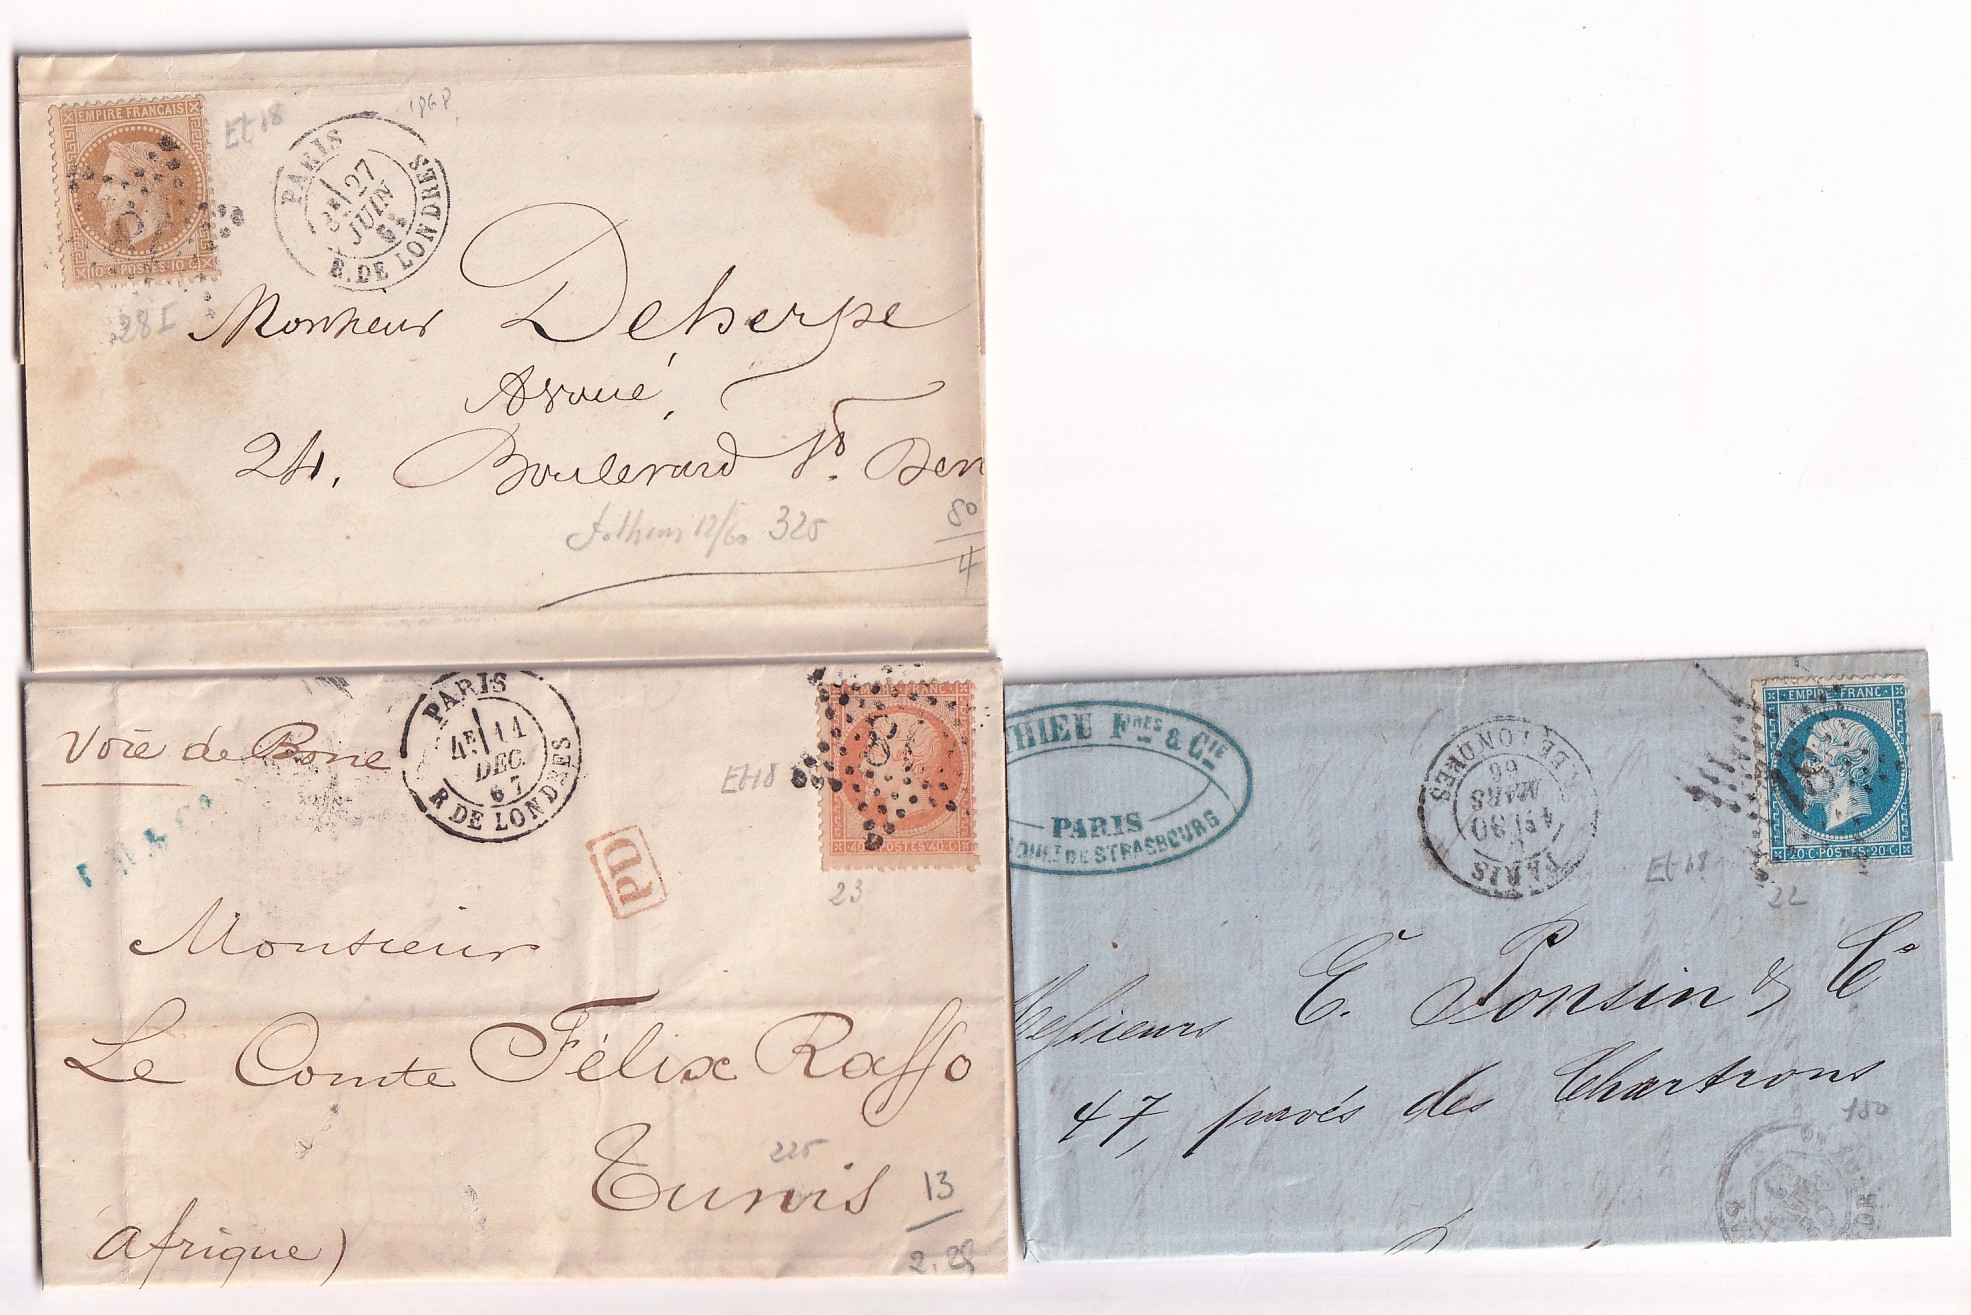 EMPIRE FRANCAIS
10 C POSTES 10 C
Et 18
28 I
PARIS
27
JUIN
R. DE LONDRES
Monsieur Deherpe
Avoué,
24, Boulevard St. Den
12/60 325
80
4
Voie de Bone
PARIS
4E 11
DEC.
67
R. DE LONDRES
EMPIRE FRANC
18
40 C POSTES 40 C
Et 18
23
PD
Monsieur
Le Comte Félix Raffo
Tunis
225
13
2.25
Afrique)
THIEU FRES & CIE
PARIS
BOULT DE STRASBOURG
PARIS
30
MARS
66
R. DE LONDRES
EMPIRE FRANC
18
20 C POSTES 20 C
Et 18
22
Messieurs E. Ponsin & Co
47, pavés des Chartrons
150